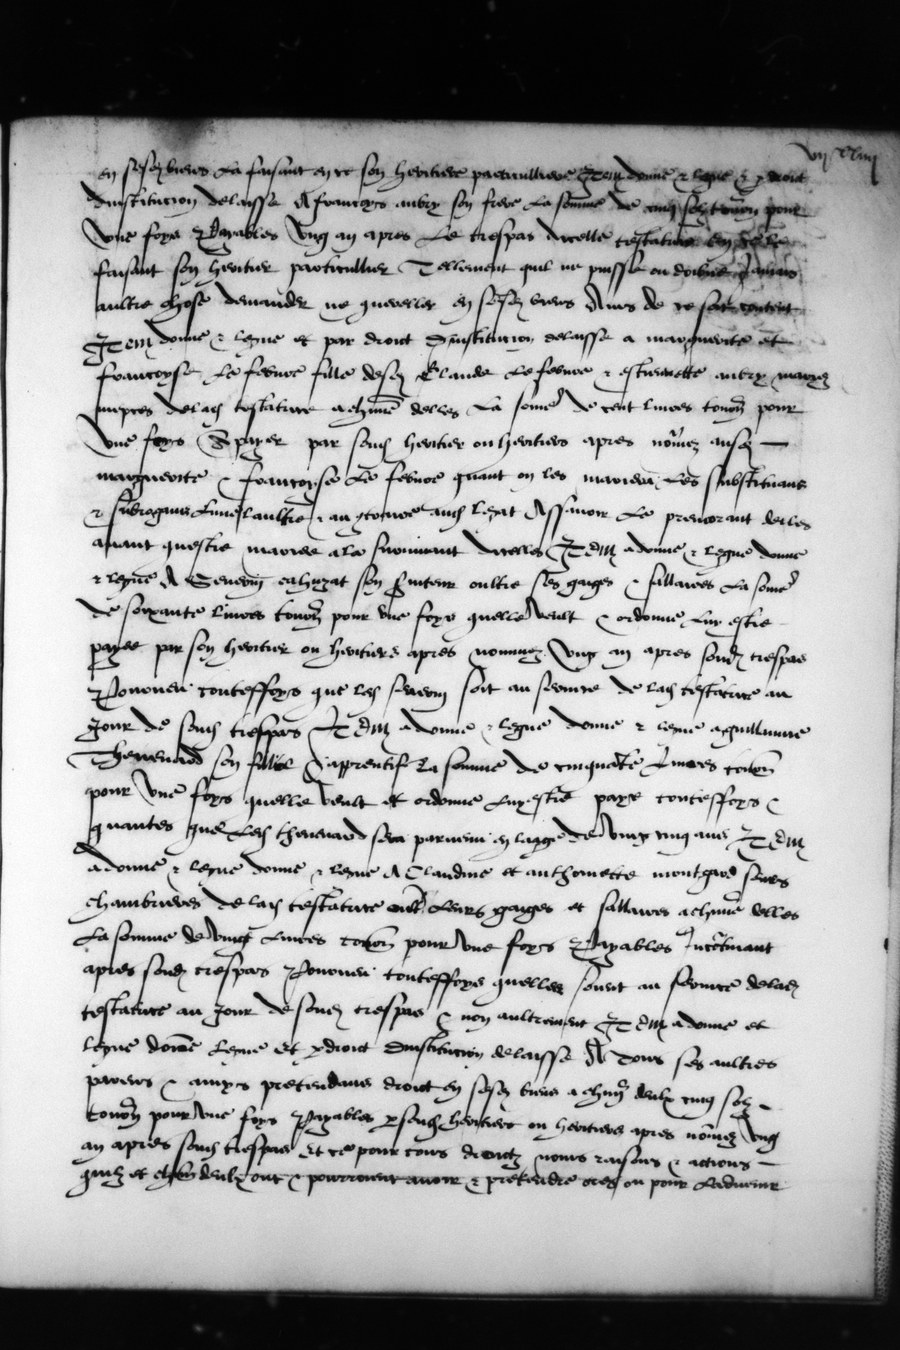 vii xliiii
en sesd biens la faisant en ce son heritiere particulliere Item donne & legue & p droit
dinstitucion delaisse A francoys aubry son frere La somme de cinq solz tournois pour
Une foys Payables Ung an apres Le trespas dicelle testatrice En ce le
faisant son heritier particullier Tellement quil ne puisse ou doibve Jamais
aultre chose demander ne quereller en sesd biens Ains de ce soit content
Item donne & legue et par droit Dinstitucion delaisse a marguerite et
francoyse Le febvre fille desd Claude Le febvre & estiennette aubry
niepces delad testatrice a chune delles La some de cent livres tourn pour
Une foys A payer par sond heritier ou heritiers apres nomez ausd
marguerite & francoyse Le febvre quant on les mariera Les substituant
& subrogant Lune laultre aud legat Assavoir Le premorant delles
avant questre mariee a la survivant dicelles Item a donne & legue donne
& legue A son serviteur oultre ses gaiges & sallaires La some
de soixante Livres tourn pour une foys quelle Veult & ordonne Luy estre
payee par son heritier ou heritiers apres nommez Ung an apres sond trespas
Pourveu touteffoys que led soit au service de lad testatrice au
Jour de sond trespas Item a donne & legue donne & legue a guillaume
Thevenard son filliol & apprentif La somme de cinquante Livres tourn
pour Une foys quelle Veult et ordonne Luy estre paye touteffoys &
quantes que Led thevenard sera parvenu en laage de Vingt cinq ans Item
a donne & legue donne & legue A Claudine et anthoinette seurs
chambrieres de lad testatrice oult Leurs gaiges et sallaires a chune delles
La somme de Vingt Livres tourn pour Une foys Payables Incontinant
apres sond trespas Pourveu touteffoys quelles soient au service delad
testatrice au Jour de sond trespas & non aultrement Item a donne et
legue donne Legue Et p droit Dinstitucion delaisse A Tous ses aultres
parens & amys pretendans droict en sesd biens a chun deulx cinq solz
tourn pour Une foys Payables p sond heritier ou heritiers apres nomez Ung
an apres sond trespas Et ce pour tous droictz noms raisons & actions
quilz et chun deulx ont & pourroient avoir & pretendre ores ou pour Ladvenir